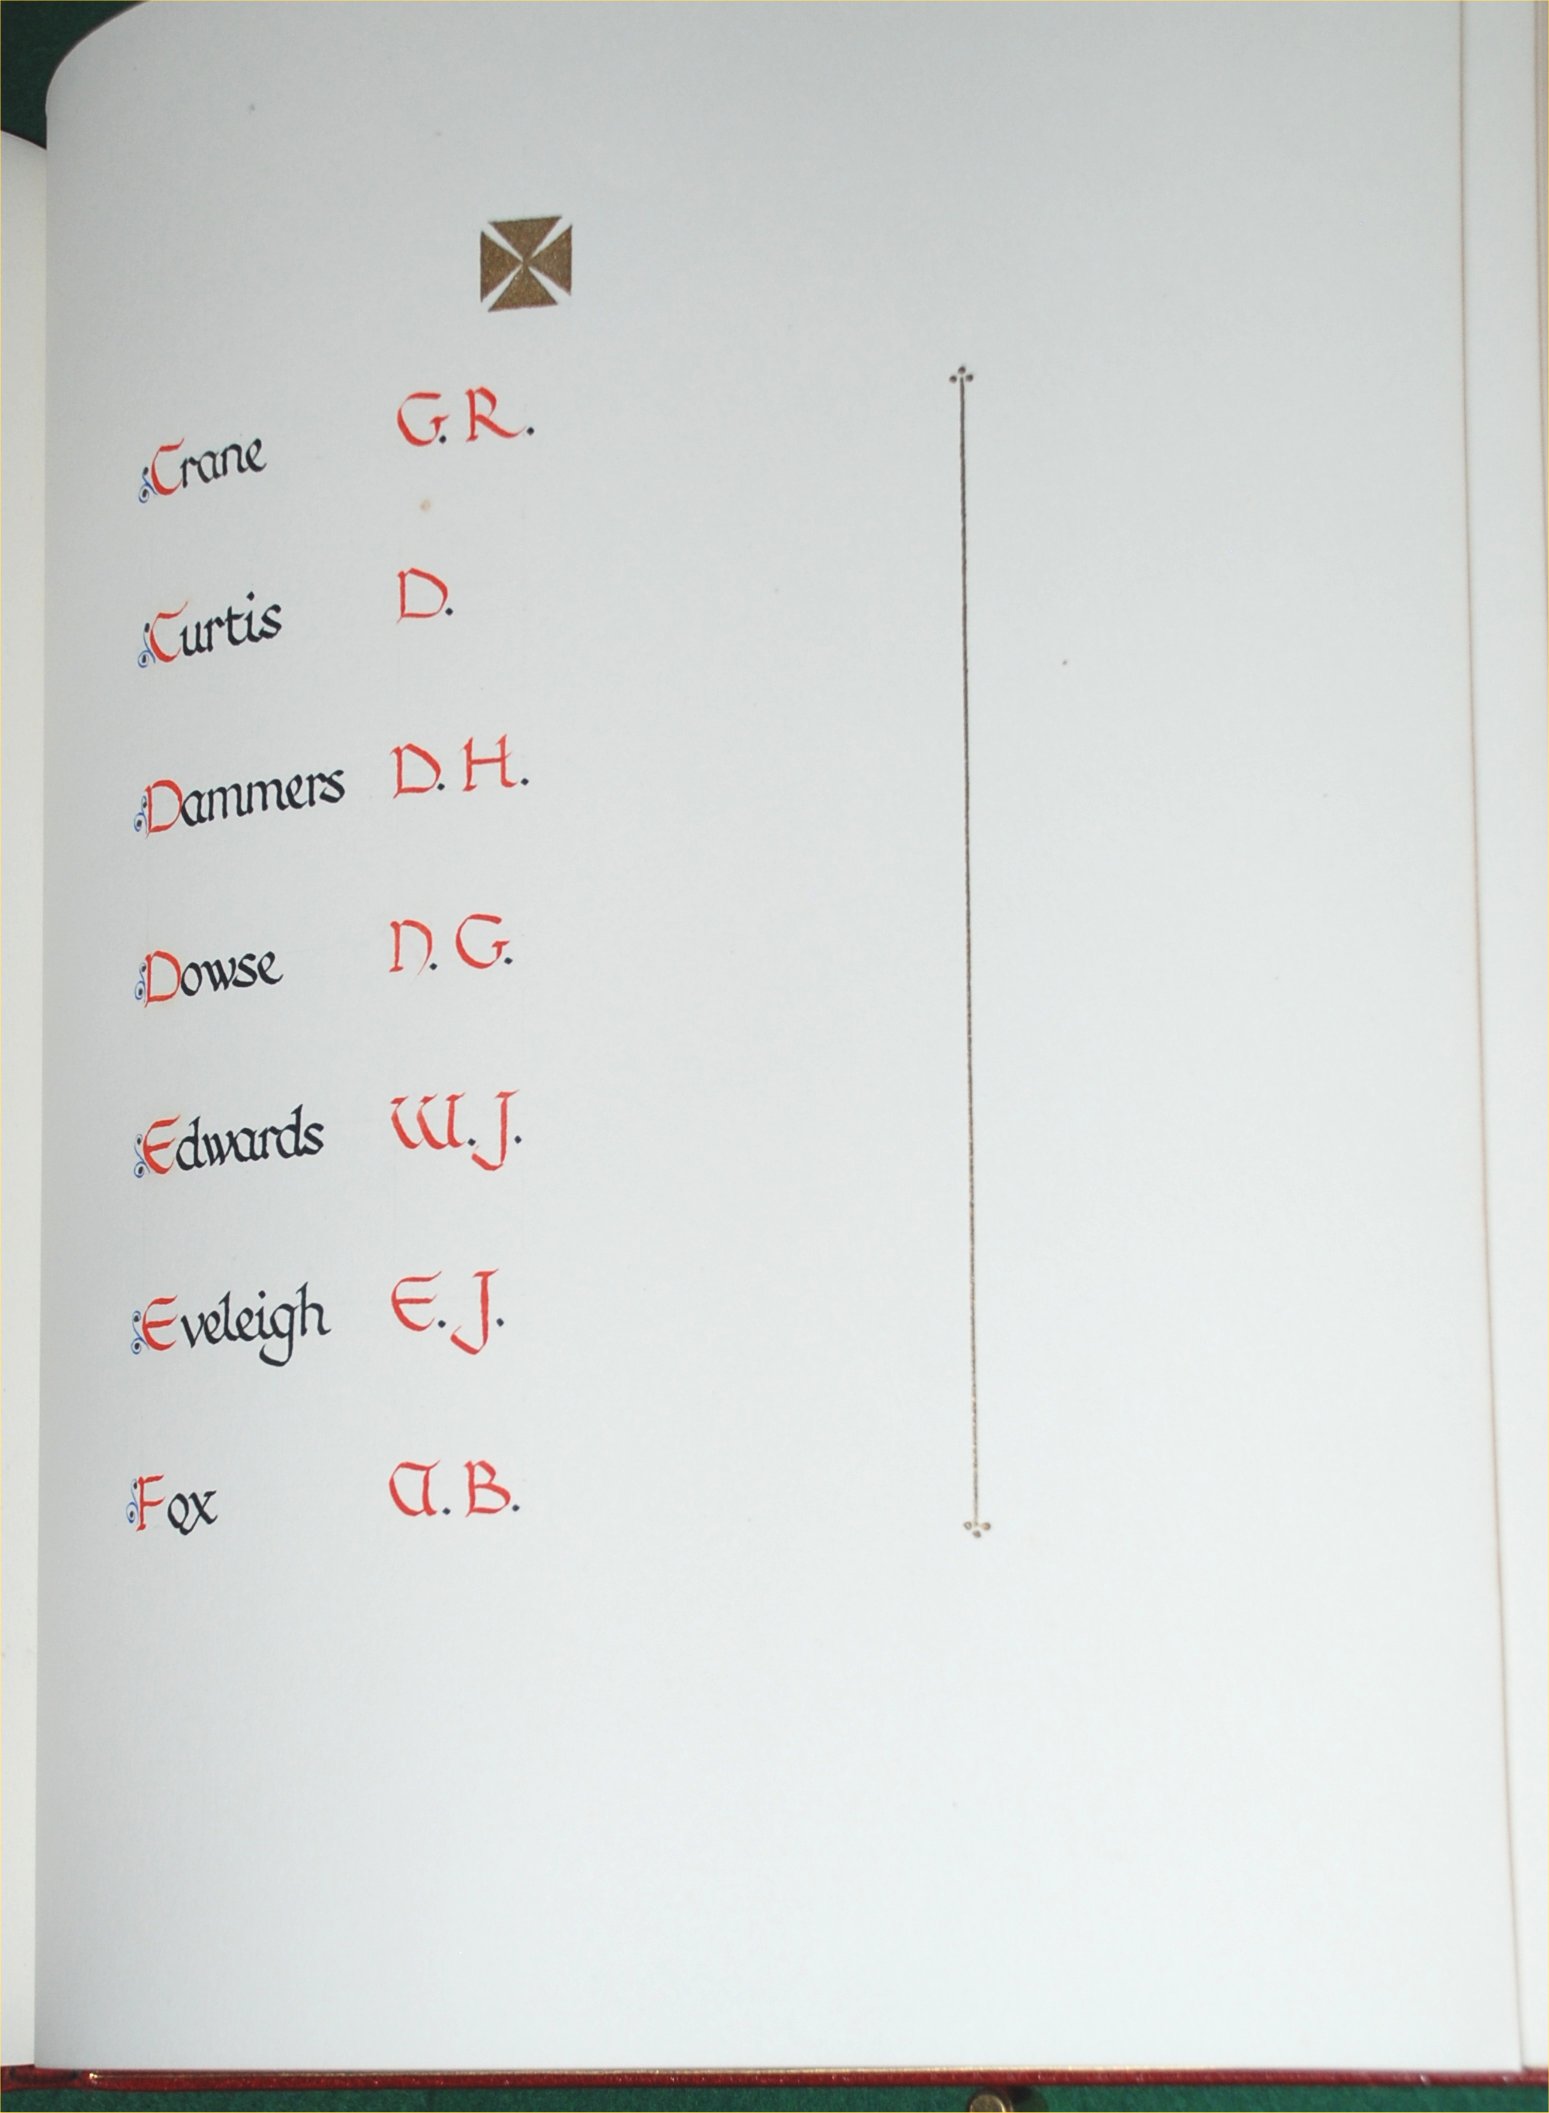 Crane G. R.
Curtis D.
Dammers D. H.
Dowse N. G.
Edwards W. J.
Eveleigh E. J.
Fox A. B.